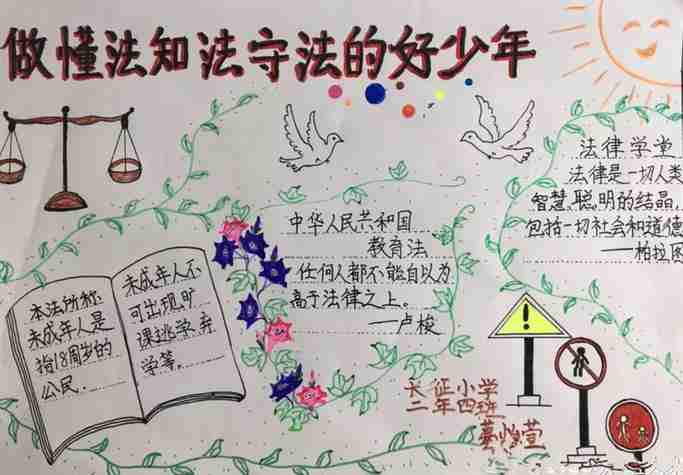 做懂法知法守法的好少年
法律学堂
法律是一切人类
智慧聪明的结晶,
包括一切社会和道德
——柏拉图
中华人民共和国
教育法
任何人都不能自以为
高于法律之上。
——卢梭
本法所称
未成年人是
指18周岁的
公民.
未成年人不
可出现旷
课逃学弃
学等.
长征小学
二年四班